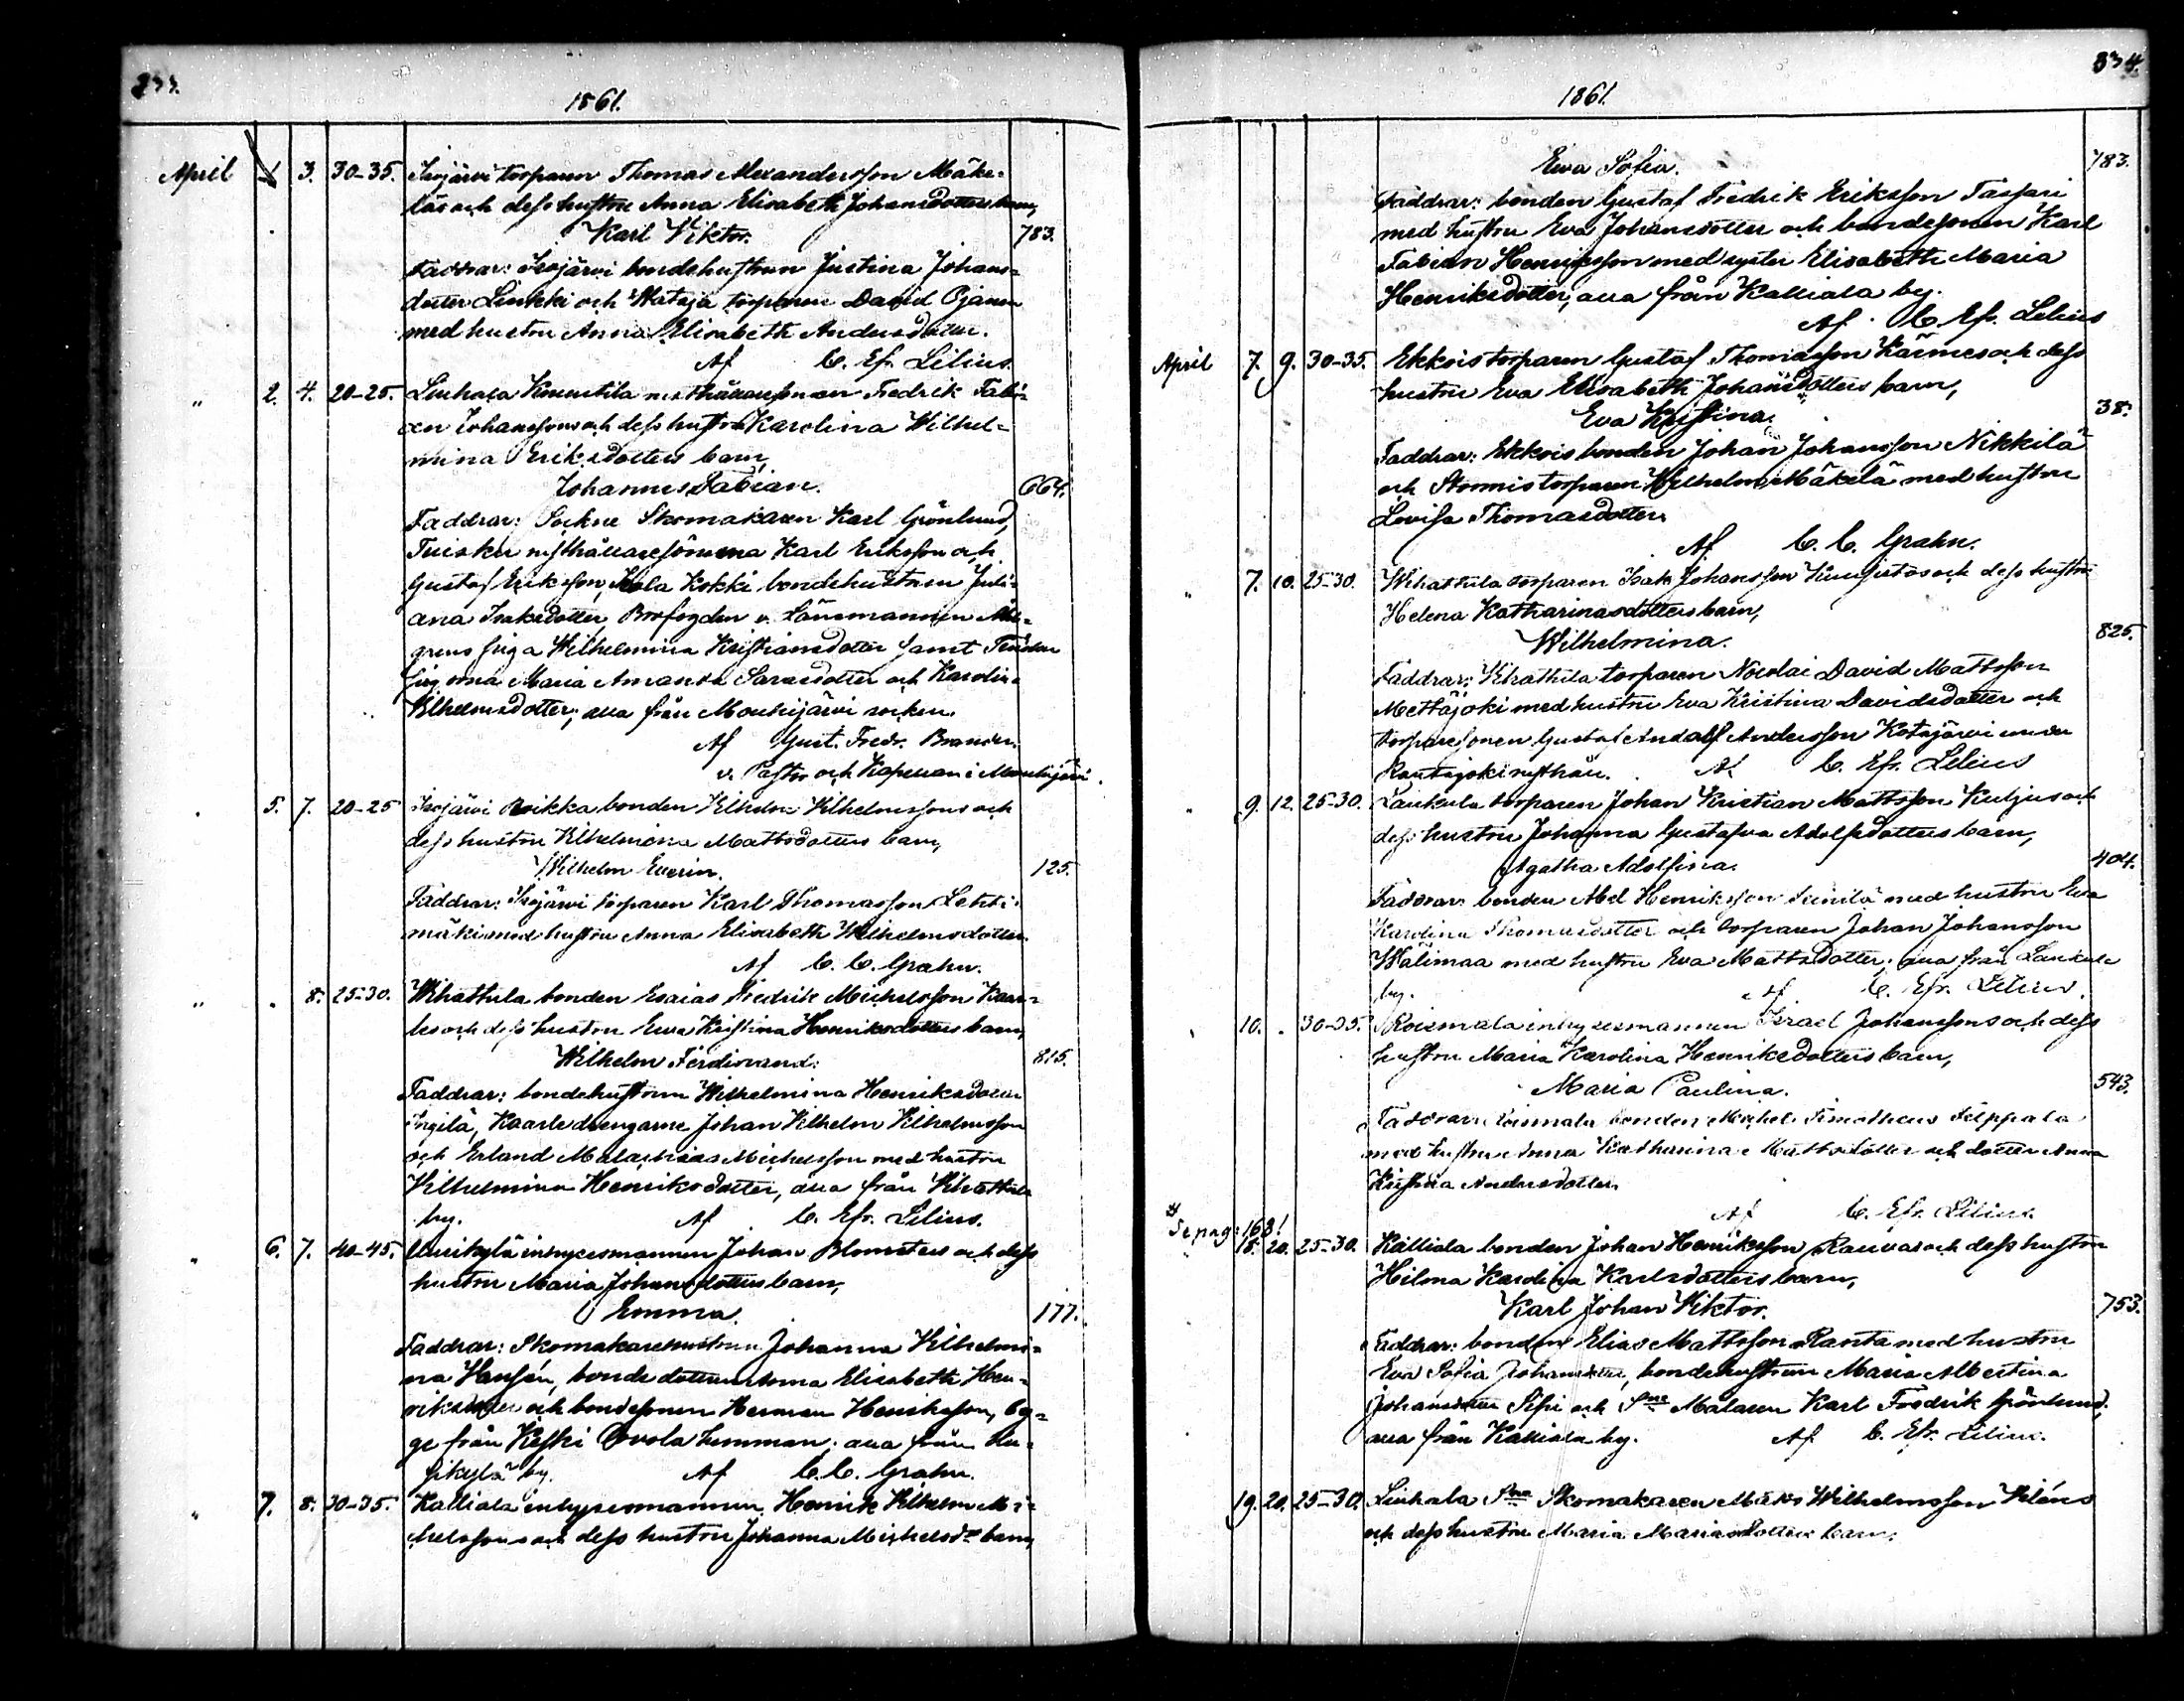 333.
1861.
April 1 3. 30-35. Isojärvi torparen Thomas Alexandersson Mäke-
läs och dess hustru Anna Elisabeth Johansdotters barn,
Karl Viktor. 783.
Faddrar: Isojärvi bondehustrun Justina Johans-
dotter Linkki och Wataja torparen David Ojanen
med hustru Anna Elisabeth Andersdotter.
Af C. Ef. Lilius.
" 2. 4. 20-25. Liuhala Knuutila rusthållaresonen Fredrik Fabi-
an Johanssons och dess hustru Karolina Wilhel-
mina Eriksdotters barn,
Johannes Fabian. 664.
Faddrar: Sockne Skomakaren Karl Grönlund,
Tuisku rusthållaresönerna Karl Eriksson och
Gustaf Eriksson, Kokki bondehustrun Juli-
ana Isaksdotter, Brofogden v. Länsmannen
grens piga Wilhelmina Kristiansdotter samt
pigorna Maria Amanda Sarasdotter och Karolin-
Wilhelmsdotter; alla från Mouhijärvi socken.
Af Gust. Fredr. Brander.
v. Pastor och Kapellan i Mouhijärvi.
5. 7. 20-25 Isojärvi bonden Wilhelm Wilhelmssons och
dess hustru Wilhelmina Mattsdotters barn,
Wilhelm Everin. 125.
Faddrar: Isojärvi torparen Karl Thomasson Lehti-
mäki med hustru Anna Elisabeth Wilhelmsdotter.
Af C. C. Grahn.
" . 8. 25-30. Wihattula bonden Esaias Fredrik Michelsson Kaar-
les och dess hustru Eva Kristina Henriksdotters barn,
Wilhelm Ferdinand. 815.
Faddrar: bondehustrun Wilhelmina Henriksdotter
Ingilä, Kaarle drengarne Johan Wilhelm Wilhelmsson
och Erland Malachias Michelsson med hustru
Wilhelmina Henriksdotter, alla från Wihattula
by. Af C. Ef. Lilius.
" 6. 7. 40-45. Uusikylä inhysesmannen Johan Blomsters och dess
hustru Maria Johansdotters barn,
Emma. 177.
Faddrar: Skomakarehustrun Johanna Wilhelmi-
na Hansén, bonde dottren Elisabeth Hen-
riksdotter och bondesonen Herman Henriksson, beg-
ge från Keski; alla från Uu-
sikylä by. Af C. C. Grahn.
" 7. 8. 30-35. Kalliala inhysesmannen Henrik Wilhelm Mi-
chelssons och dess hustru Johanna Michelsdrs barn,
334.
1861.
Eva Sofia. 783.
Faddrar: bonden Gustaf Fredrik Eriksson Taipari
med hustru Eva Johansdotter och bondesonen Karl
Fabian Henriksson med syster Elisabeth Maria
Henriksdotter, alla från Kalliala by.
Af C. Ef. Lilius
April 7. 9. 30-35. Ekkois torparen Gustaf Thomasson Kärmes och dess
hustru Eva Elisabeth Johansdotters barn,
Eva Kristina. 38.
Faddrar: Ekkois bonden Johan Johansson Nikkilä
och Stormis torparen Wilhelm Mäkelä med hustru
Lovisa Thomasdotter.
Af C. C. Grahn.
" 7. 10. 25-30. Wihattula torparen Isak Johansson och dess hustru
Helena Katharinasdotters barn,
Wilhelmina. 825.
Faddrar: Wihattula torparen Nicolai David Mattsson
Mettäjoki med hustru Eva Kristina Davidsdotter och
torparesonen Gustaf Andersson Kotajärvi under
Rautajoki rusthåll. Af C. Ef. Lilius
" 9. 12. 25-30. Laukula torparen Johan Kristian Mattsson Kuljus och
dess hustru Johanna Gustafva Adolfsdotters barn,
Agatha Adolfina. 404.
Faddrar: bonden Abel Henriksson med hustru Eva
Karolina Thomasdotter och torparen Johan Johansson
Wälimaa med hustru Eva Mattsdotter, alla från Laukula
by. Af C. Ef. Lilius.
10. . 30-35. Roismala inhysesmannen Israel Johanssons och dess
hustru Maria Karolina Henriksdotters barn,
Maria Paulina. 543.
Faddrar: Roismala bonden Michel Timotheus Filppala
med hustru Anna Katharina Mattsdotter och dotter Anna
Kristina Andersdotter.
Af C. Ef. Lilius.
Se pag: 168!
18. 20. 25-30. Kalliala bonden Johan Henriksson Rauvas och dess hustru
Hilma Karolina Karlsdotters barn,
Karl Johan Viktor. 753.
Faddrar: bonden Elias Mattsson Ranta med hustru
Eva Sofia Johansdotter, bondehustrun Maria Albertina
Johansdotter Sipi och Sne Målaren Karl Fredrik Grönlund;
alla från Kalliala by. Af C. Ef. Lilius.
19. 20. 25-30. Liuhala Sne Skomakaren Matts Wilhelmsson Wiléns
och dess hustru Maria Mariasdotters barn,